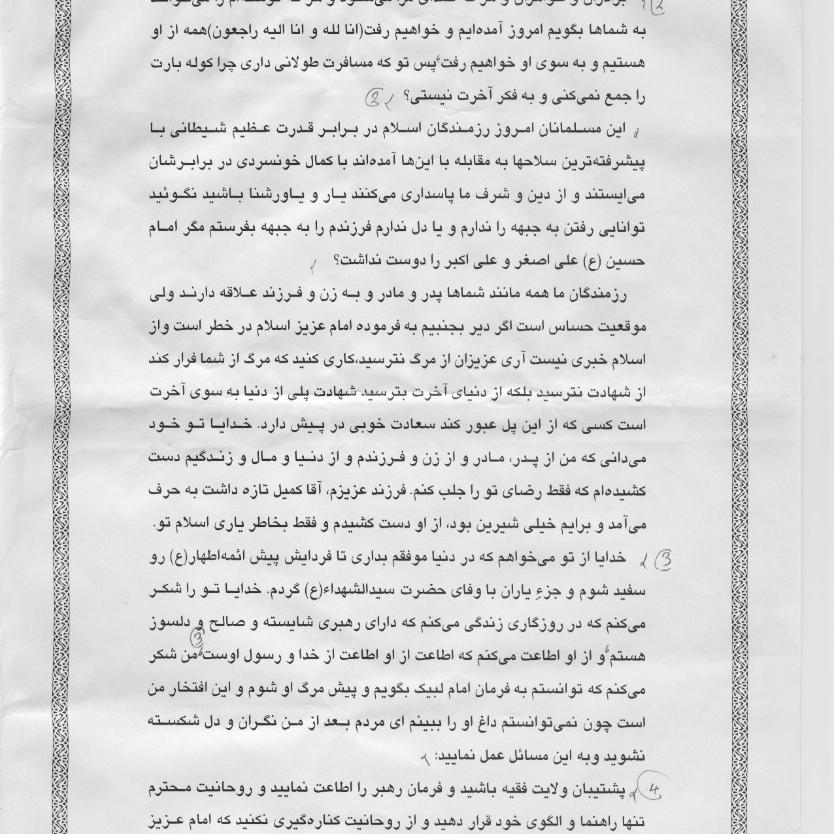 به شماها بگویم امروز آمده‌ایم و خواهیم رفت(انا لله و انا الیه راجعون)همه از او
هستیم و به سوی او خواهیم رفت پس تو که مسافرت طولانی داری چرا کوله بارت
را جمع نمی‌کنی و به فکر آخرت نیستی؟ 2
این مسلمانان امروز رزمندگان اسلام در برابر قدرت عظیم شیطانی با
پیشرفته‌ترین سلاحها به مقابله با این‌ها آمده‌اند با کمال خونسردی در برابرشان
می‌ایستند و از دین و شرف ما پاسداری می‌کنند یار و یاورشنا باشید نگوئید
توانایی رفتن به جبهه را ندارم و یا دل ندارم فرزندم را به جبهه بفرستم مگر امام
حسین (ع) علی اصغر و علی اکبر را دوست نداشت؟
رزمندگان ما همه مانند شماها پدر و مادر و به زن و فرزند علاقه دارند ولی
موقعیت حساس است اگر دیر بجنبیم به فرموده امام عزیز اسلام در خطر است واز
اسلام خبری نیست آری عزیزان از مرگ نترسید،کاری کنید که مرگ از شما فرار کند
از شهادت نترسید بلکه از دنیای آخرت بترسید شهادت پلی از دنیا به سوی آخرت
است کسی که از این پل عبور کند سعادت خوبی در پیش دارد. خدایا تو خود
می‌دانی که من از پدر، مادر و از زن و فرزندم و از دنیا و مال و زندگیم دست
کشیده‌ام که فقط رضای تو را جلب کنم. فرزند عزیزم، آقا کمیل تازه داشت به حرف
می‌آمد و برایم خیلی شیرین بود، از او دست کشیدم و فقط بخاطر یاری اسلام تو.
3 خدایا از تو می‌خواهم که در دنیا موفقم بداری تا فردایش پیش ائمه‌اطهار(ع) رو
سفید شوم و جزءِ یاران با وفای حضرت سیدالشهداء(ع) گردم. خدایا تو را شکر
می‌کنم که در روزگاری زندگی می‌کنم که دارای رهبری شایسته و صالح و دلسوز
هستم و از او اطاعت می‌کنم که اطاعت از او اطاعت از خدا و رسول اوست من شکر
می‌کنم که توانستم به فرمان امام لبیک بگویم و پیش مرگ او شوم و این افتخار من
است چون نمی‌توانستم داغ او را ببینم ای مردم بعد از من نگران و دل شکسته
نشوید وبه این مسائل عمل نمایید:
4 پشتیبان ولایت فقیه باشید و فرمان رهبر را اطاعت نمایید و روحانیت محترم
تنها راهنما و الگوی خود قرار دهید و از روحانیت کناره‌گیری نکنید که امام عزیز